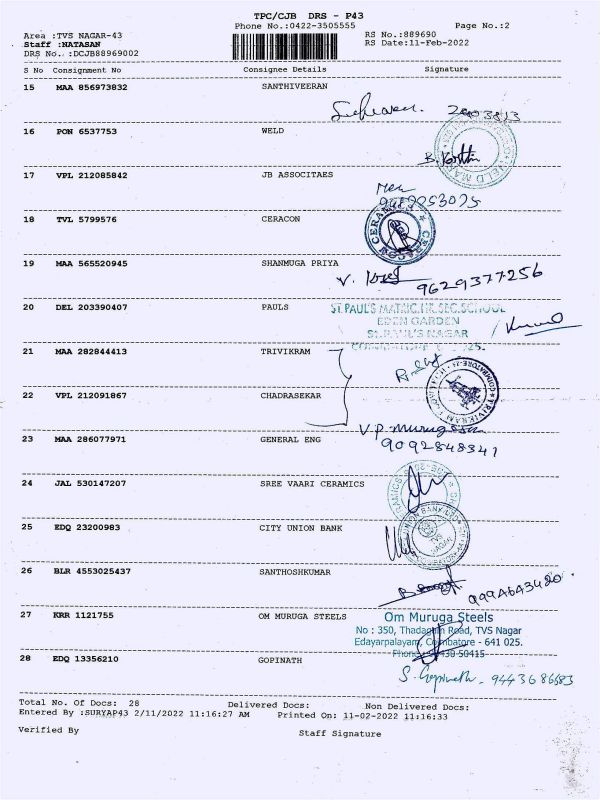 TPC/CJB DRS - P43
Phone No.:0422-3505555 Page No.:2
Area :TVS NAGAR-43 RS No.:889690
Staff :NATASAN RS Date:11-Feb-2022
DRS No..:DCJB88969002
S No Consignment No Consignee Details Signature
15 MAA 856973832 SANTHIVEERAN
16 PON 6537753 WELD
B. Karthi
17 VPL 212085842 JB ASSOCITAES
18 TVL 5799576 CERACON
CERACON
19 MAA 565520945 SHANMUGA PRIYA
9629377256
20 DEL 203390407 PAULS
ST.PAUL'S MATRIC.HR.SEC.SCHOOL
EDEN GARDEN
ST.PAUL'S NAGAR
21 MAA 282844413 TRIVIKRAM
22 VPL 212091867 CHADRASEKAR
V.P. Murugesan
23 MAA 286077971 GENERAL ENG
9092848341
24 JAL 530147207 SREE VAARI CERAMICS
25 EDQ 23200983 CITY UNION BANK
TVS
NAGAR
26 BLR 4553025437 SANTHOSHKUMAR
27 KRR 1121755 OM MURUGA STEELS
Om Muruga Steels
No : 350, Thadagam Road, TVS Nagar
Edayarpalayam, Coimbatore - 641 025.
28 EDQ 13356210 GOPINATH
S. Gopinath - 9443686583
Total No. Of Docs: 28 Delivered Docs: Non Delivered Docs:
Entered By :SURYAP43 2/11/2022 11:16:27 AM Printed On: 11-02-2022 11:16:33
Verified By Staff Signature